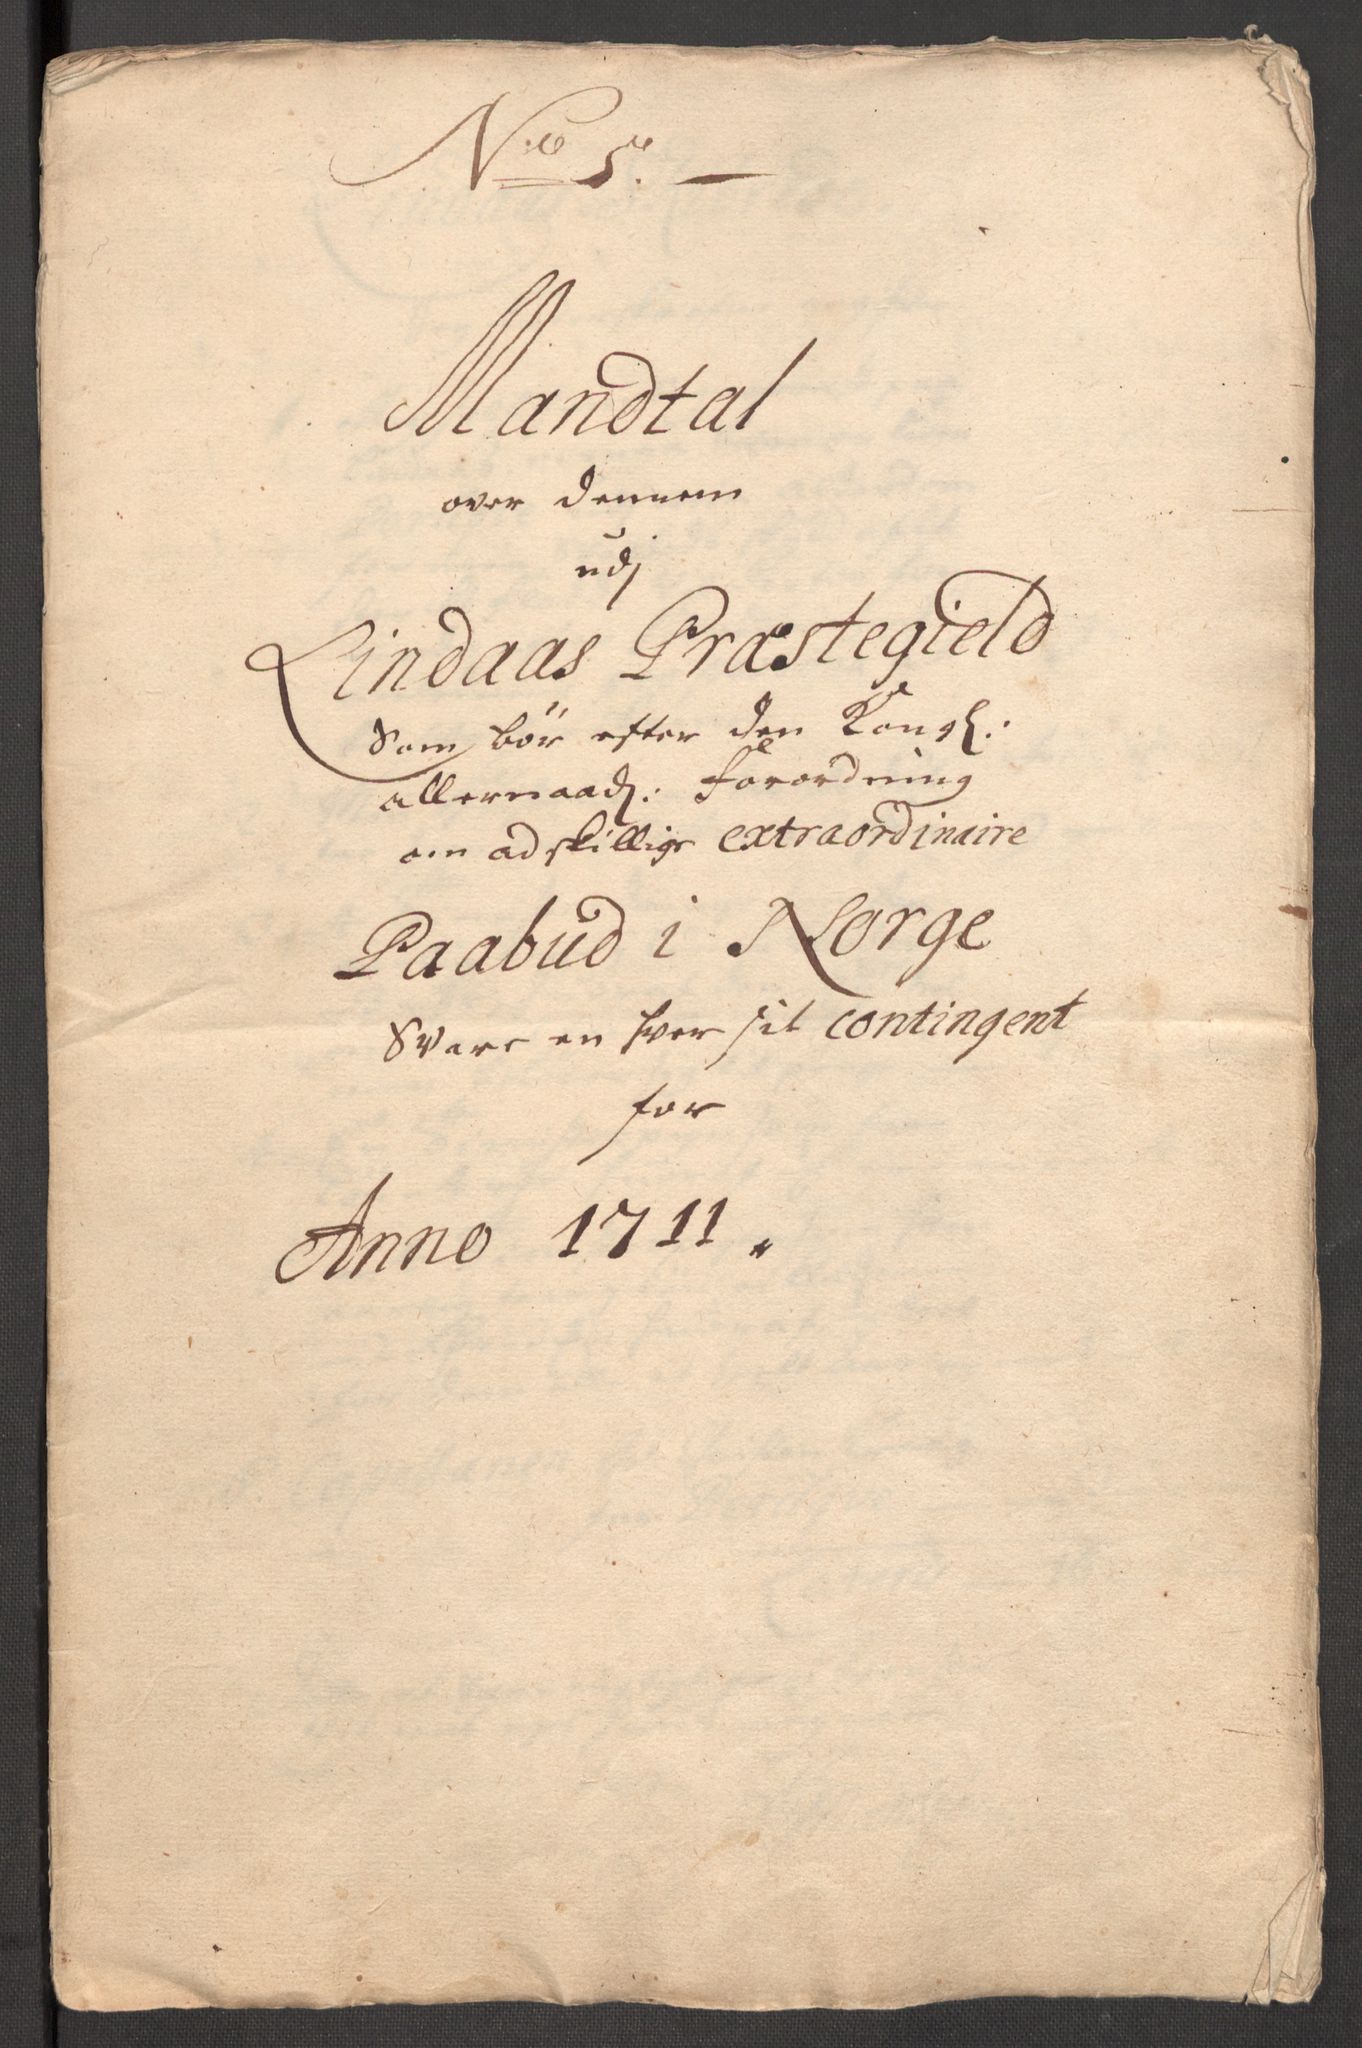 No 5. —
Mandtal
over dennem
udj
Lindaas Præstegield
Som bör efter den Kongl:
allernaad: Forordning
om adskillige extraordinaire
Paabud i Norge
Svare en hver sit contingent
for
Anno 1711.